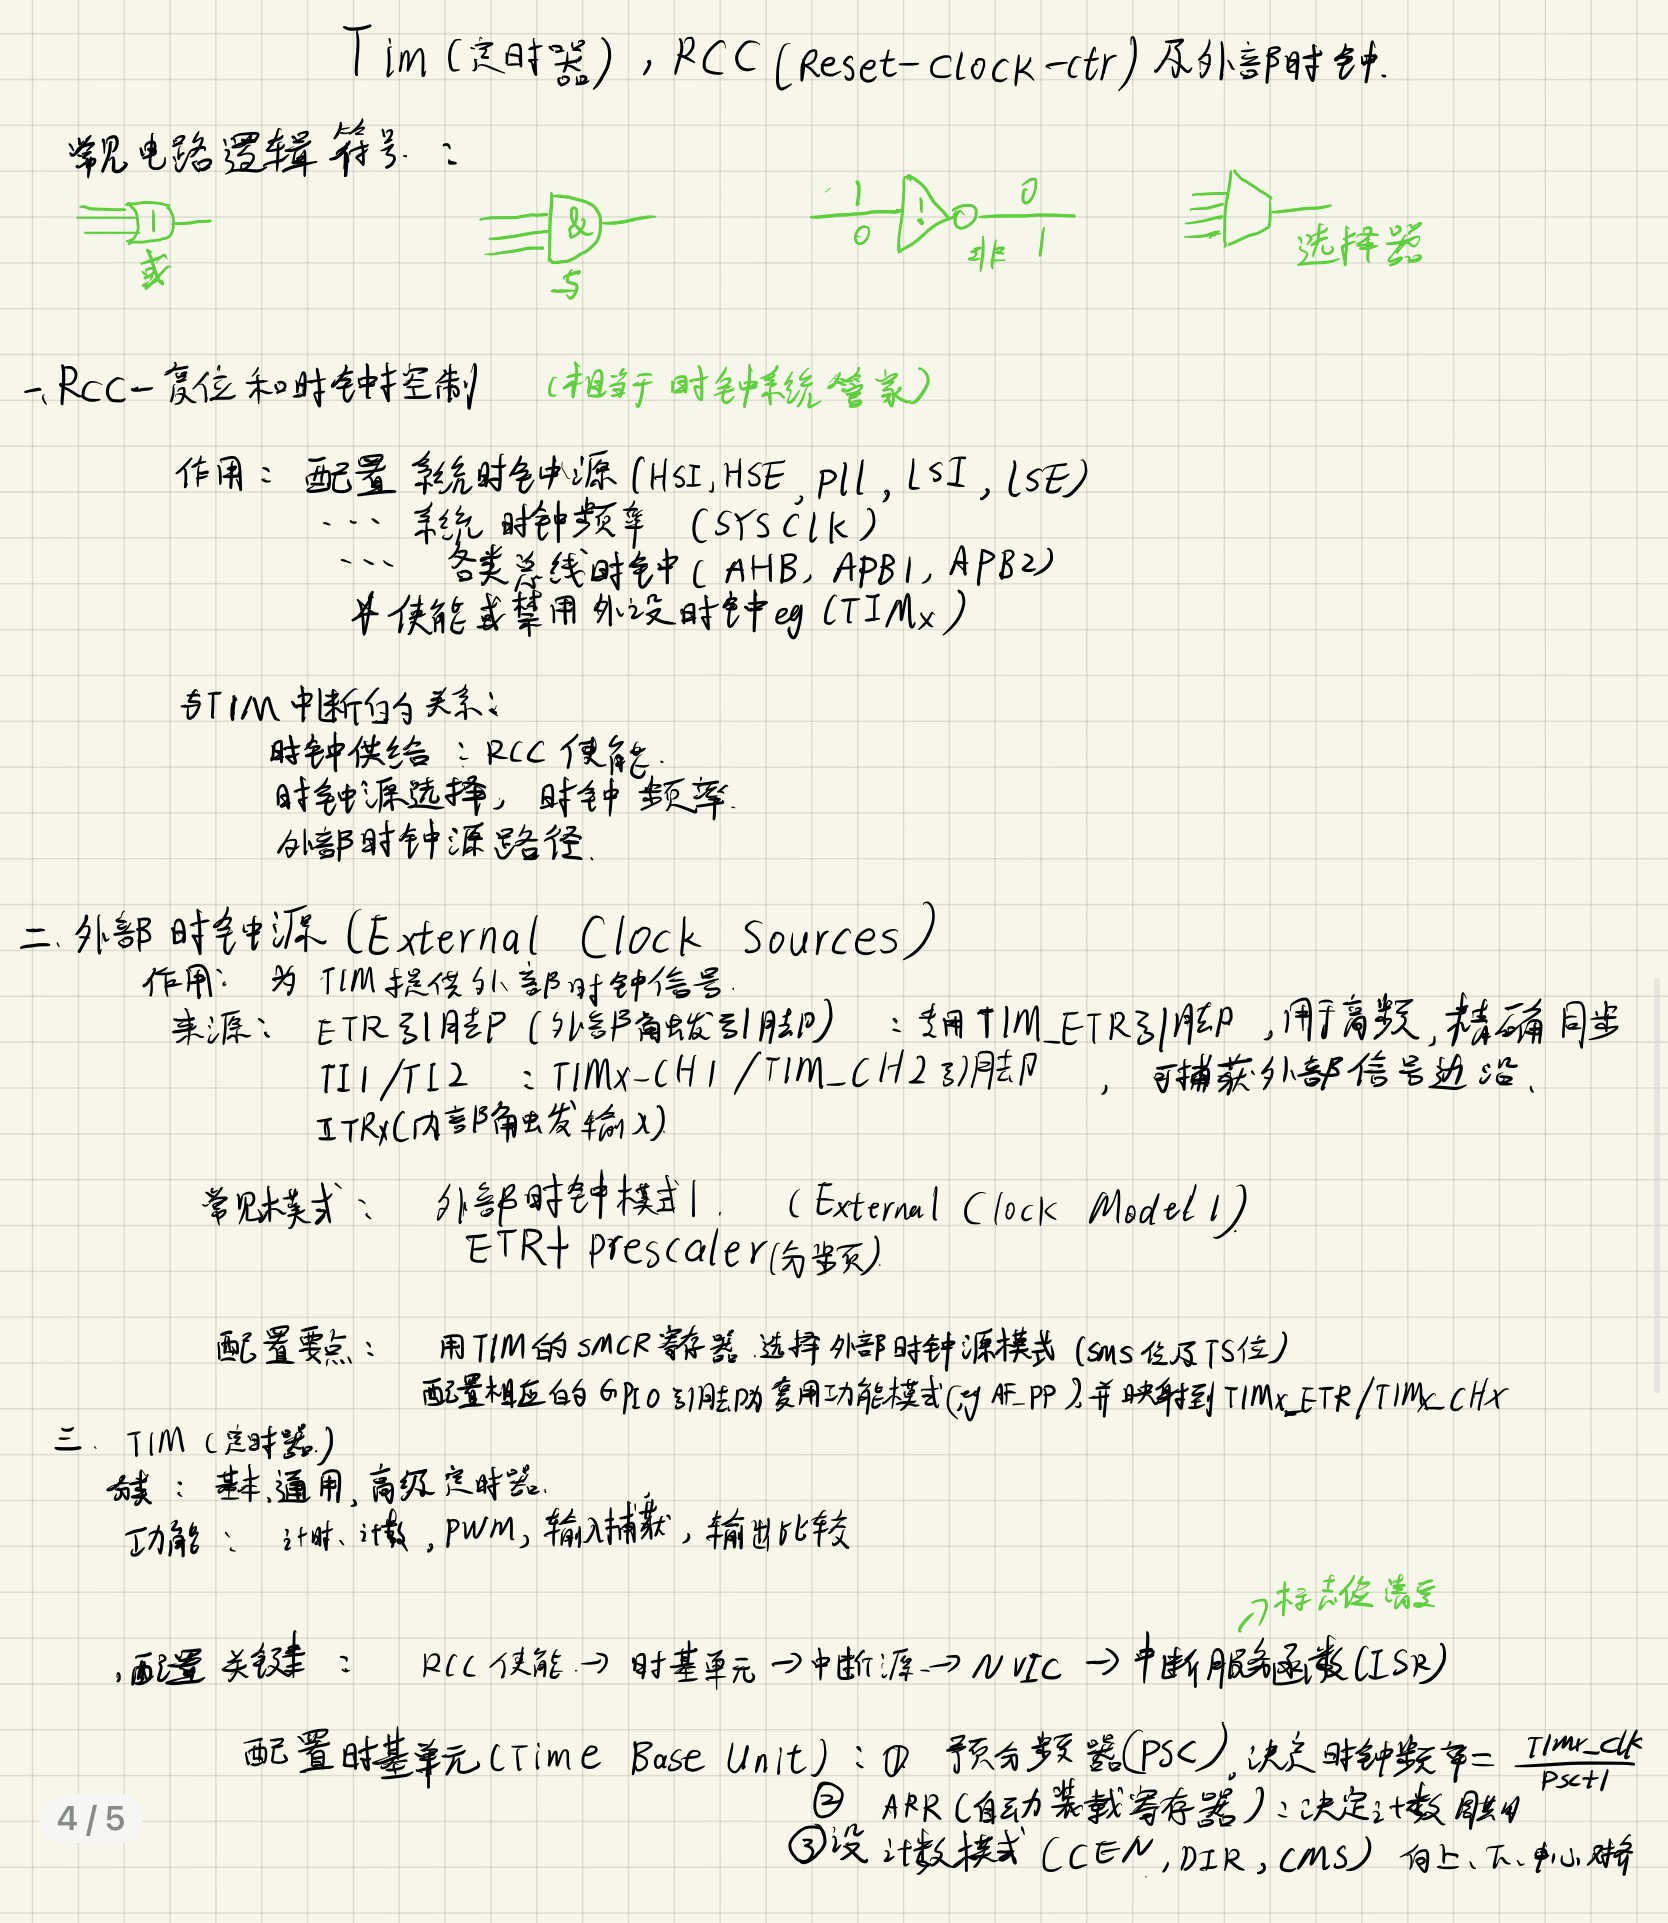 Tim (定时器), RCC (Reset-Clock-ctr) 及外部时钟.
常见电路逻辑符号:
1 & 1 ! 0 0 1
或 与 非 选择器
一、RCC-复位和时钟控制 (相当于时钟系统管家)
作用: 配置系统时钟源 (HSI, HSE, Pll, LSI, LSE)
... 系统时钟频率 (SYSClk)
... 各类总线时钟 (AHB, APB1, APB2)
并使能或禁用外设时钟 eg (TIMx)
与TIM中断的关系:
时钟供给: RCC使能.
时钟源选择, 时钟频率.
外部时钟源路径.
二、外部时钟源 (External Clock Sources)
作用: 为TIM提供外部时钟信号.
来源: ETR引脚 (外部触发引脚): 专用TIM_ETR引脚, 用于高频, 精确同步
TI1/TI2: TIMx-CH1/TIM_CH2引脚, 可捕获外部信号边沿.
ITRx (内部触发输入)
常见模式: 外部时钟模式1. (External Clock Model 1)
ETR+prescaler (分频)
配置要点: 用TIM的SMCR寄存器选择外部时钟源模式 (SMS位及TS位)
配置相应的GPIO引脚为复用功能模式 (eg AF_PP), 并映射到TIMx_ETR/TIMx_CHx
三. TIM (定时器)
分类: 基本, 通用, 高级定时器.
功能: 计时、计数, PWM, 输入捕获, 输出比较
标志位清空
配置关键: RCC使能→时基单元→中断源→NVIC→中断服务函数(ISR)
配置时基单元 (Time Base Unit): ① 预分频器(PSC), 决定时钟频率= TIMx_clk / Psc+1
② ARR (自动装载寄存器): 决定计数周期
③ 设计数模式 (CEN, DIR, CMS) 向上、下、中心对齐
4/5